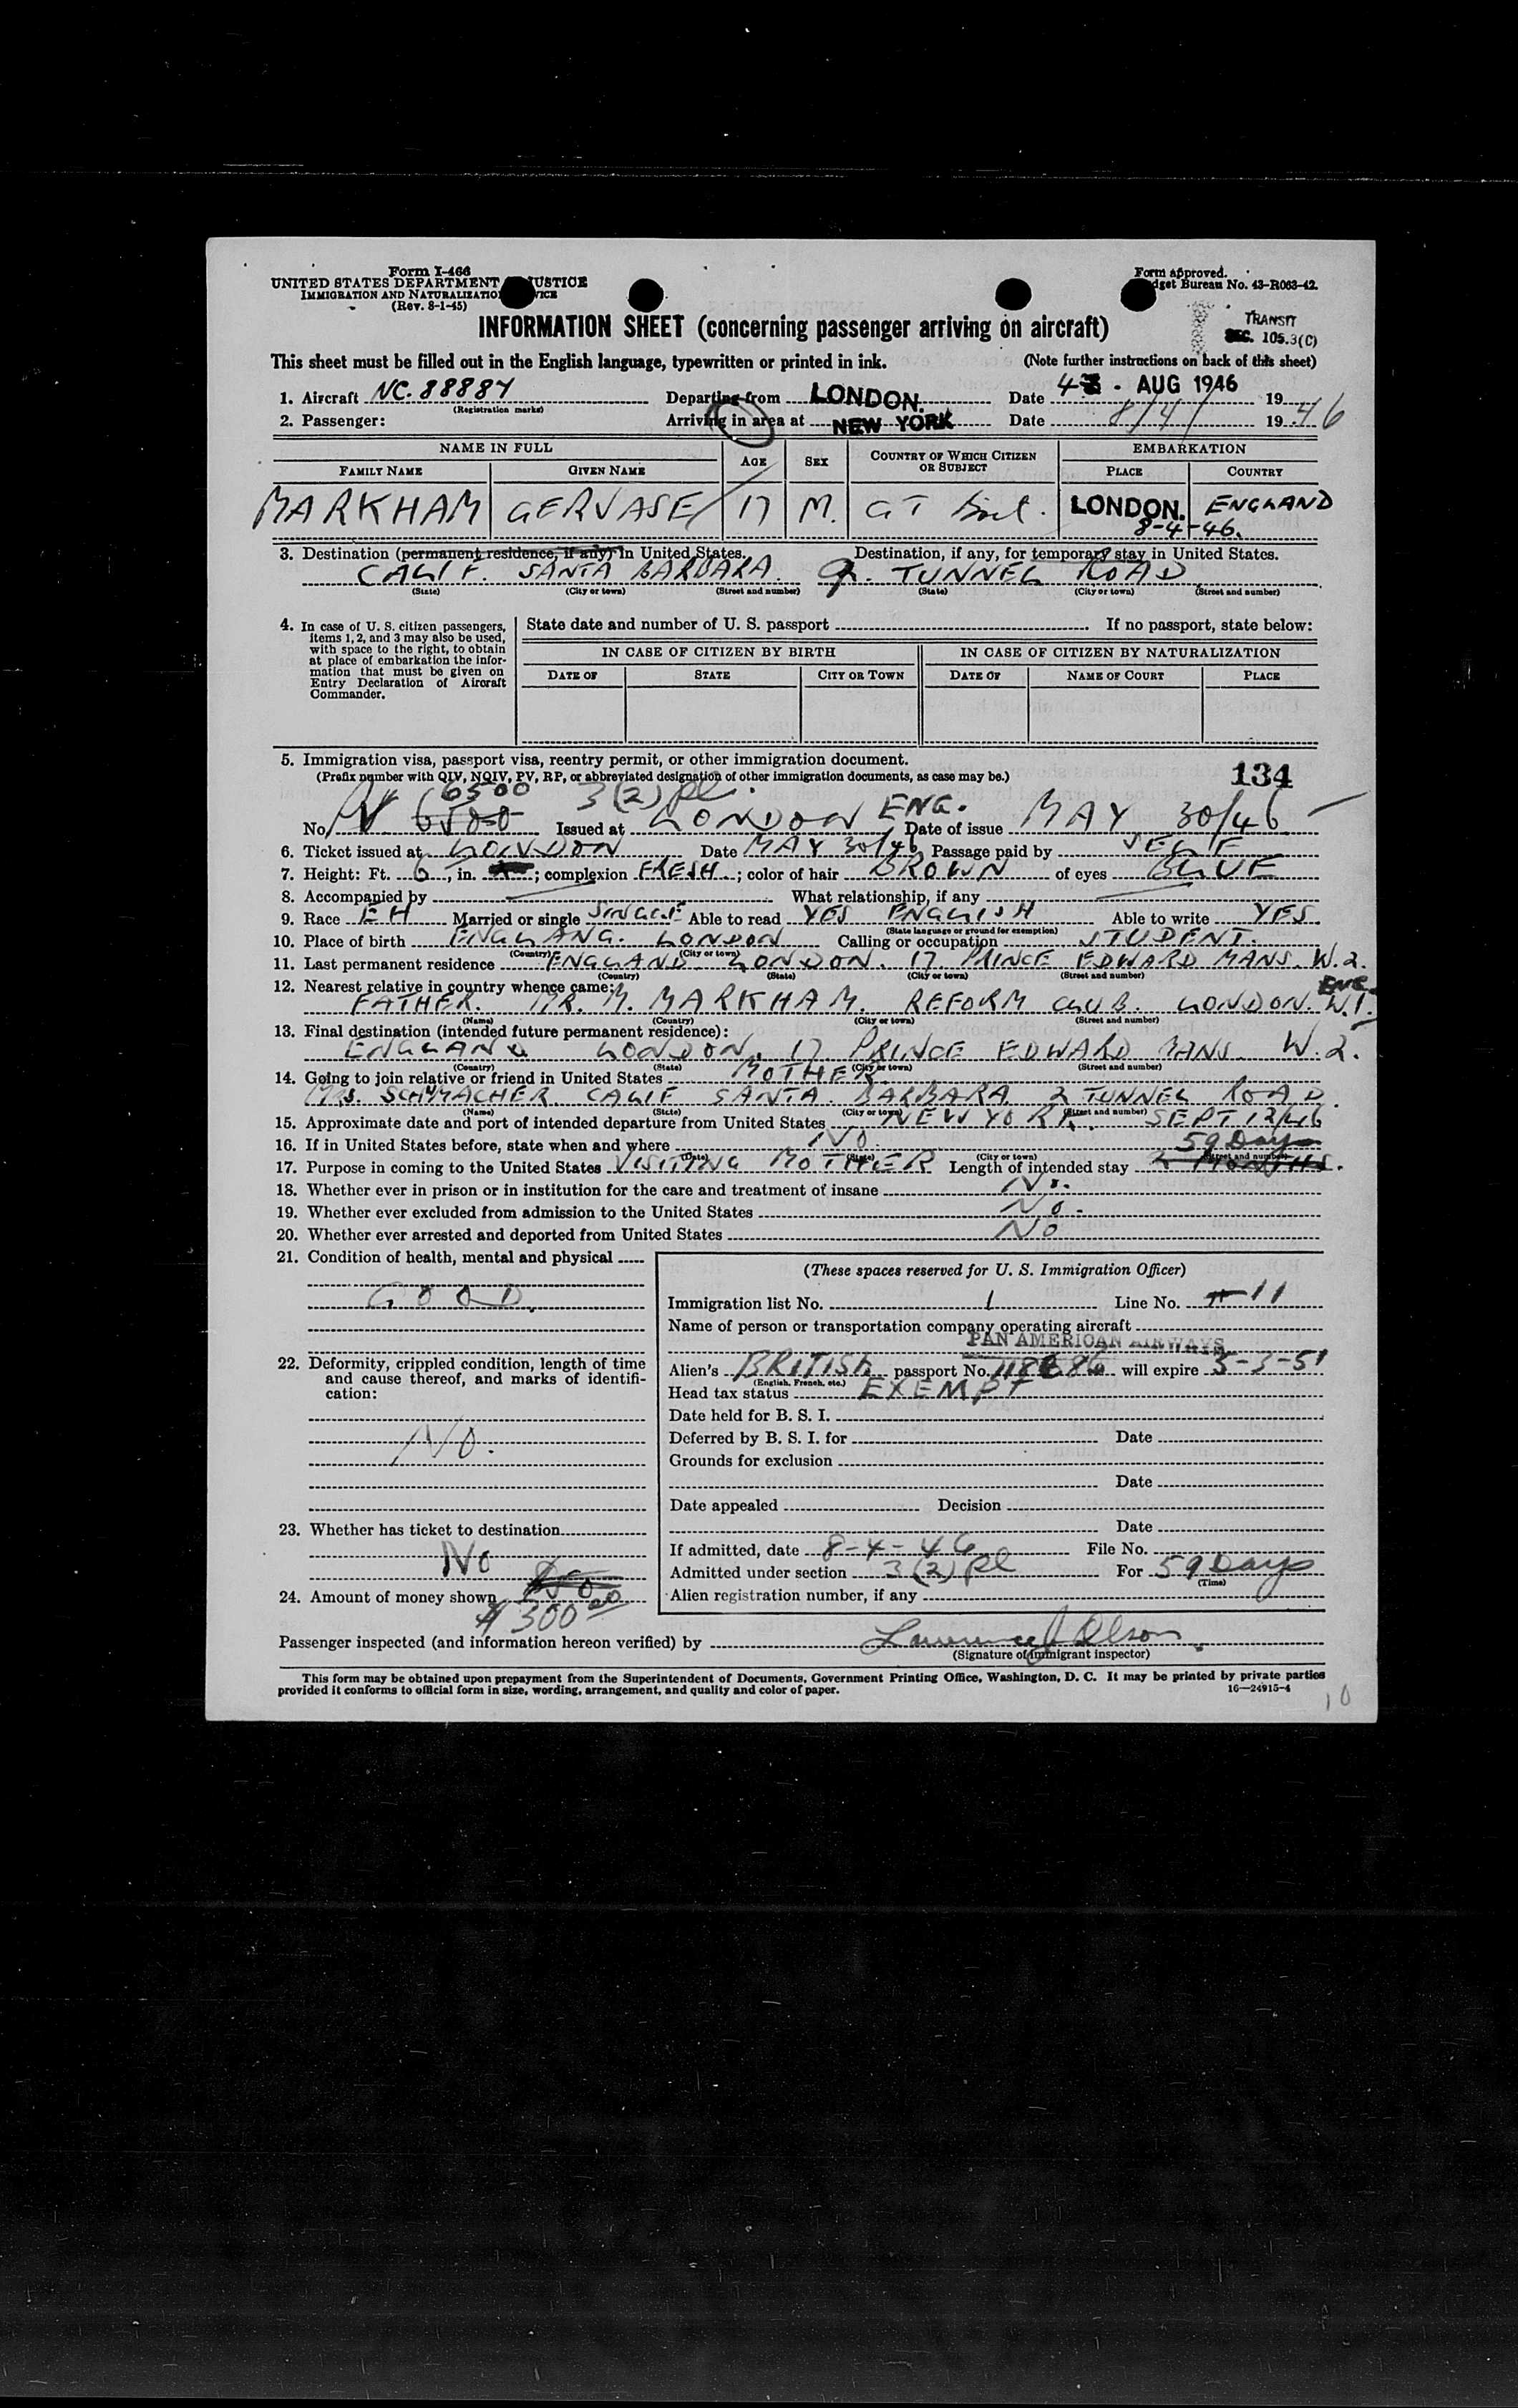 Form I-466
UNITED STATES DEPARTMENT JUSTICE
IMMIGRATION AND NATURALIZATIO VICE
(Rev. 8-1-45)
Form approved.
dget Bureau No. 43-R063-42.
INFORMATION SHEET (concerning passenger arriving on aircraft)
TRANSIT
SEC. 105.3(C)
This sheet must be filled out in the English language, typewritten or printed in ink. (Note further instructions on back of this sheet)
1. Aircraft NC. 88887 Departing from LONDON. Date 4 - AUG 1946 19
(Registration marks)
2. Passenger: Arriving in area at NEW YORK Date 8/4/ 19 46
NAME IN FULL AGE SEX COUNTRY OF WHICH CITIZEN OR SUBJECT EMBARKATION
FAMILY NAME GIVEN NAME PLACE COUNTRY
MARKHAM GERVASE 17 M. GT Brit. LONDON. ENGLAND
8-4-46.
3. Destination (permanent residence, if any) in United States. Destination, if any, for temporary stay in United States.
CALIF. SANTA BARBARA. 2. TUNNEL ROAD
(State) (City or town) (Street and number) (State) (City or town) (Street and number)
4. In case of U. S. citizen passengers, items 1, 2, and 3 may also be used, with space to the right, to obtain at place of embarkation the information that must be given on Entry Declaration of Aircraft Commander.
State date and number of U. S. passport If no passport, state below:
IN CASE OF CITIZEN BY BIRTH IN CASE OF CITIZEN BY NATURALIZATION
DATE OF STATE CITY OR TOWN DATE OF NAME OF COURT PLACE
5. Immigration visa, passport visa, reentry permit, or other immigration document.
(Prefix number with QIV, NQIV, PV, RP, or abbreviated designation of other immigration documents, as case may be.) 134
6500 3(2) pl.
No. PV 6500 Issued at LONDON ENG. Date of issue MAY 30/46
6. Ticket issued at LONDON Date MAY 30/46 Passage paid by SELF
7. Height: Ft. 6, in. ; complexion FRESH.; color of hair BROWN of eyes BLUE
8. Accompanied by What relationship, if any
9. Race EH Married or single SINGLE Able to read YES ENGLISH Able to write YES
(State language or ground for exemption)
10. Place of birth ENGLAND. LONDON Calling or occupation STUDENT.
(Country) (City or town)
11. Last permanent residence ENGLAND LONDON. 17. PRINCE EDWARD MANS. W.2.
(Country) (State) (City or town) (Street and number)
12. Nearest relative in country whence came: ENG.
FATHER. MR. M. MARKHAM. REFORM CLUB. LONDON. W.1.
(Name) (Country) (City or town) (Street and number)
13. Final destination (intended future permanent residence):
ENGLAND LONDON, 17. PRINCE EDWARD MANS. W.2.
(Country) (State) (City or town) (Street and number)
14. Going to join relative or friend in United States MOTHER.
MRS. SCHUMACHER CALIF SANTA BARBARA 2 TUNNEL ROAD.
(Name) (State) (City or town) (Street and number)
15. Approximate date and port of intended departure from United States NEW YORK. SEPT 12/46
16. If in United States before, state when and where NO. 59 Days
(Date) (State) (City or town) (Street and number)
17. Purpose in coming to the United States VISITING MOTHER Length of intended stay 2 MONTHS.
18. Whether ever in prison or in institution for the care and treatment of insane No.
19. Whether ever excluded from admission to the United States No.
20. Whether ever arrested and deported from United States NO
21. Condition of health, mental and physical
GOOD.
22. Deformity, crippled condition, length of time and cause thereof, and marks of identification:
NO.
23. Whether has ticket to destination
NO
24. Amount of money shown
$300 00
(These spaces reserved for U. S. Immigration Officer)
Immigration list No. 1 Line No. 11
Name of person or transportation company operating aircraft
PAN AMERICAN AIRWAYS
Alien's BRITISH passport No. will expire 5-3-51
(English, French, etc.)
Head tax status EXEMPT
Date held for B. S. I.
Deferred by B. S. I. for Date
Grounds for exclusion
Date
Date appealed Decision
Date
If admitted, date 8-4-46 File No.
Admitted under section 3(2) pl For 59 Days
(Time)
Alien registration number, if any
Passenger inspected (and information hereon verified) by Lawrence J Olson
(Signature of immigrant inspector)
This form may be obtained upon prepayment from the Superintendent of Documents, Government Printing Office, Washington, D. C. It may be printed by private parties
provided it conforms to official form in size, wording, arrangement, and quality and color of paper. 16—24915-4
10